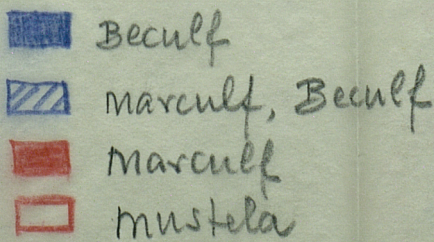 Beculf
Marculf, Beculf
Marculf
Mustela